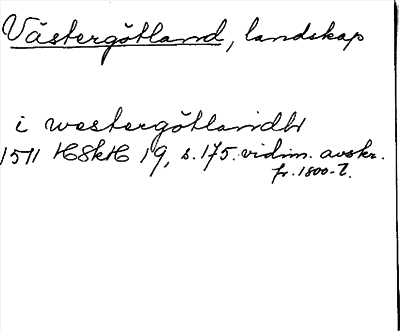 Västergötland, landskap
i westergötlandh
1511 HSkH 19, s. 175. vidim. avskr.
fr. 1800-t.